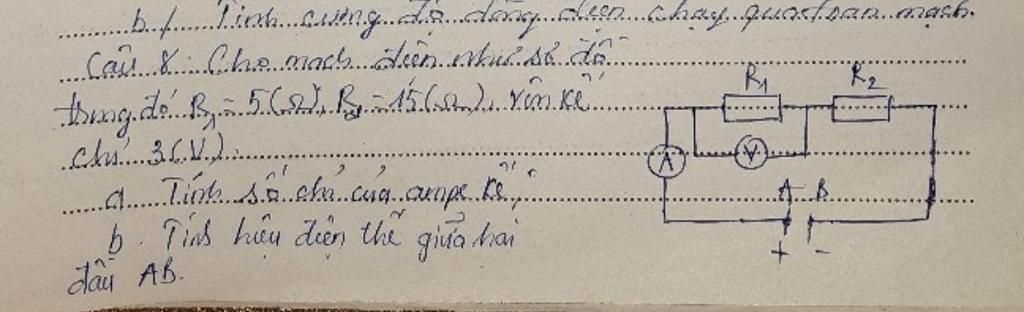 b./. Tính cường độ dòng điện chạy qua đoạn mạch.
Câu 8: Cho mạch điện như sơ đồ
trong đó R₁ = 5(Ω), R₂ = 15(Ω), Vôn kế
chỉ 3(V).
a Tính số chỉ của ampe kế,
b. Tính hiệu điện thế giữa hai
đầu AB.
R₁ R₂
A V
A B
+ -